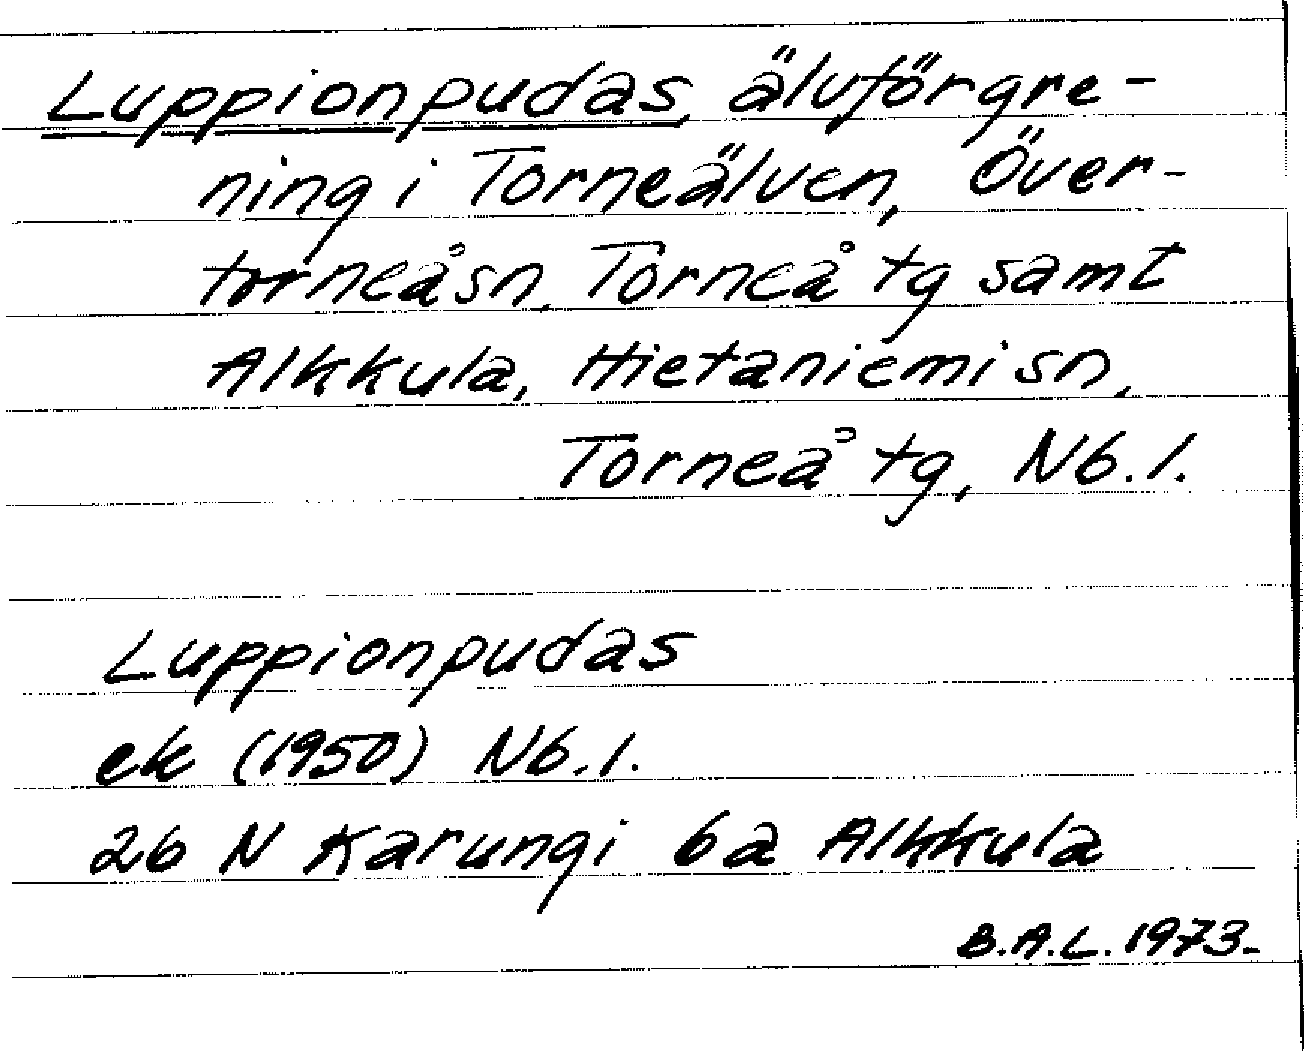 Luppionpudas, älvförgre-
ning i Torneälven, Över-
torneå sn, Torneå tg samt
Alkkula, Hietaniemi sn,
Torneå tg, Nb. l.
Luppionpudas
ek (1950) Nb. l.
26 N Karungi 6a Alkkula
B.A.L. 1973.